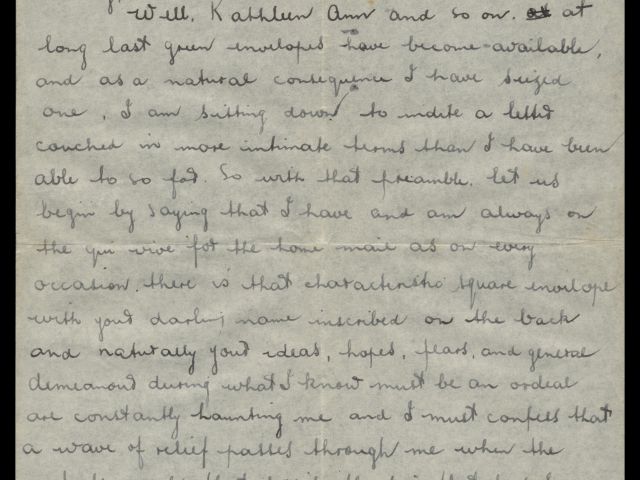 Well, Kathleen Ann and so on. at
long last green envelopes have become available,
and as a natural consequence I have seized
one, I am sitting down to indite a letter
couched in more intimate terms than I have been
able to so far. So with that preamble. let us
begin by saying that I have and am always on
the qui vive for the home mail as on every
occasion. there is that characteristic square envelope
with your darling name inscribed on the back
and naturally your ideas, hopes, fears, and general
demeanour during what I know must be an ordeal
are constantly haunting me and I must confess that
a wave of relief passes through me when the